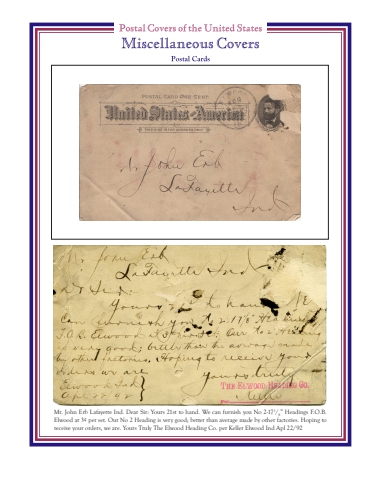 Postal Covers of the United States
Miscellaneous Covers
Postal Cards
POSTAL CARD ONE CENT.
United States America
Mr. John Erb
LaFayette
Ind
Mr. John Erb
LaFayette Ind
Dear Sir.
Yours 21st to hand. We
Can furnish you No 2-17⅛" Headings
F.O.B. Elwood at 3¢ per set. Our No 2 Heading
is very good; better than the average made
by other factories. Hoping to receive your
orders we are
Yours truly
THE ELWOOD HEADING CO.
Elwood Ind
Apl 22/92
Mr. John Erb Lafayette Ind. Dear Sir: Yours 21st to hand. We can furnish you No 2-17⅛" Headings F.O.B.
Elwood at 3¢ per set. Out No 2 Heading is very good; better than average made by other factories. Hoping to
receive your orders, we are. Yours Truly, The Elwood Heading Co. per Keller Elwood Ind Apl 22/92